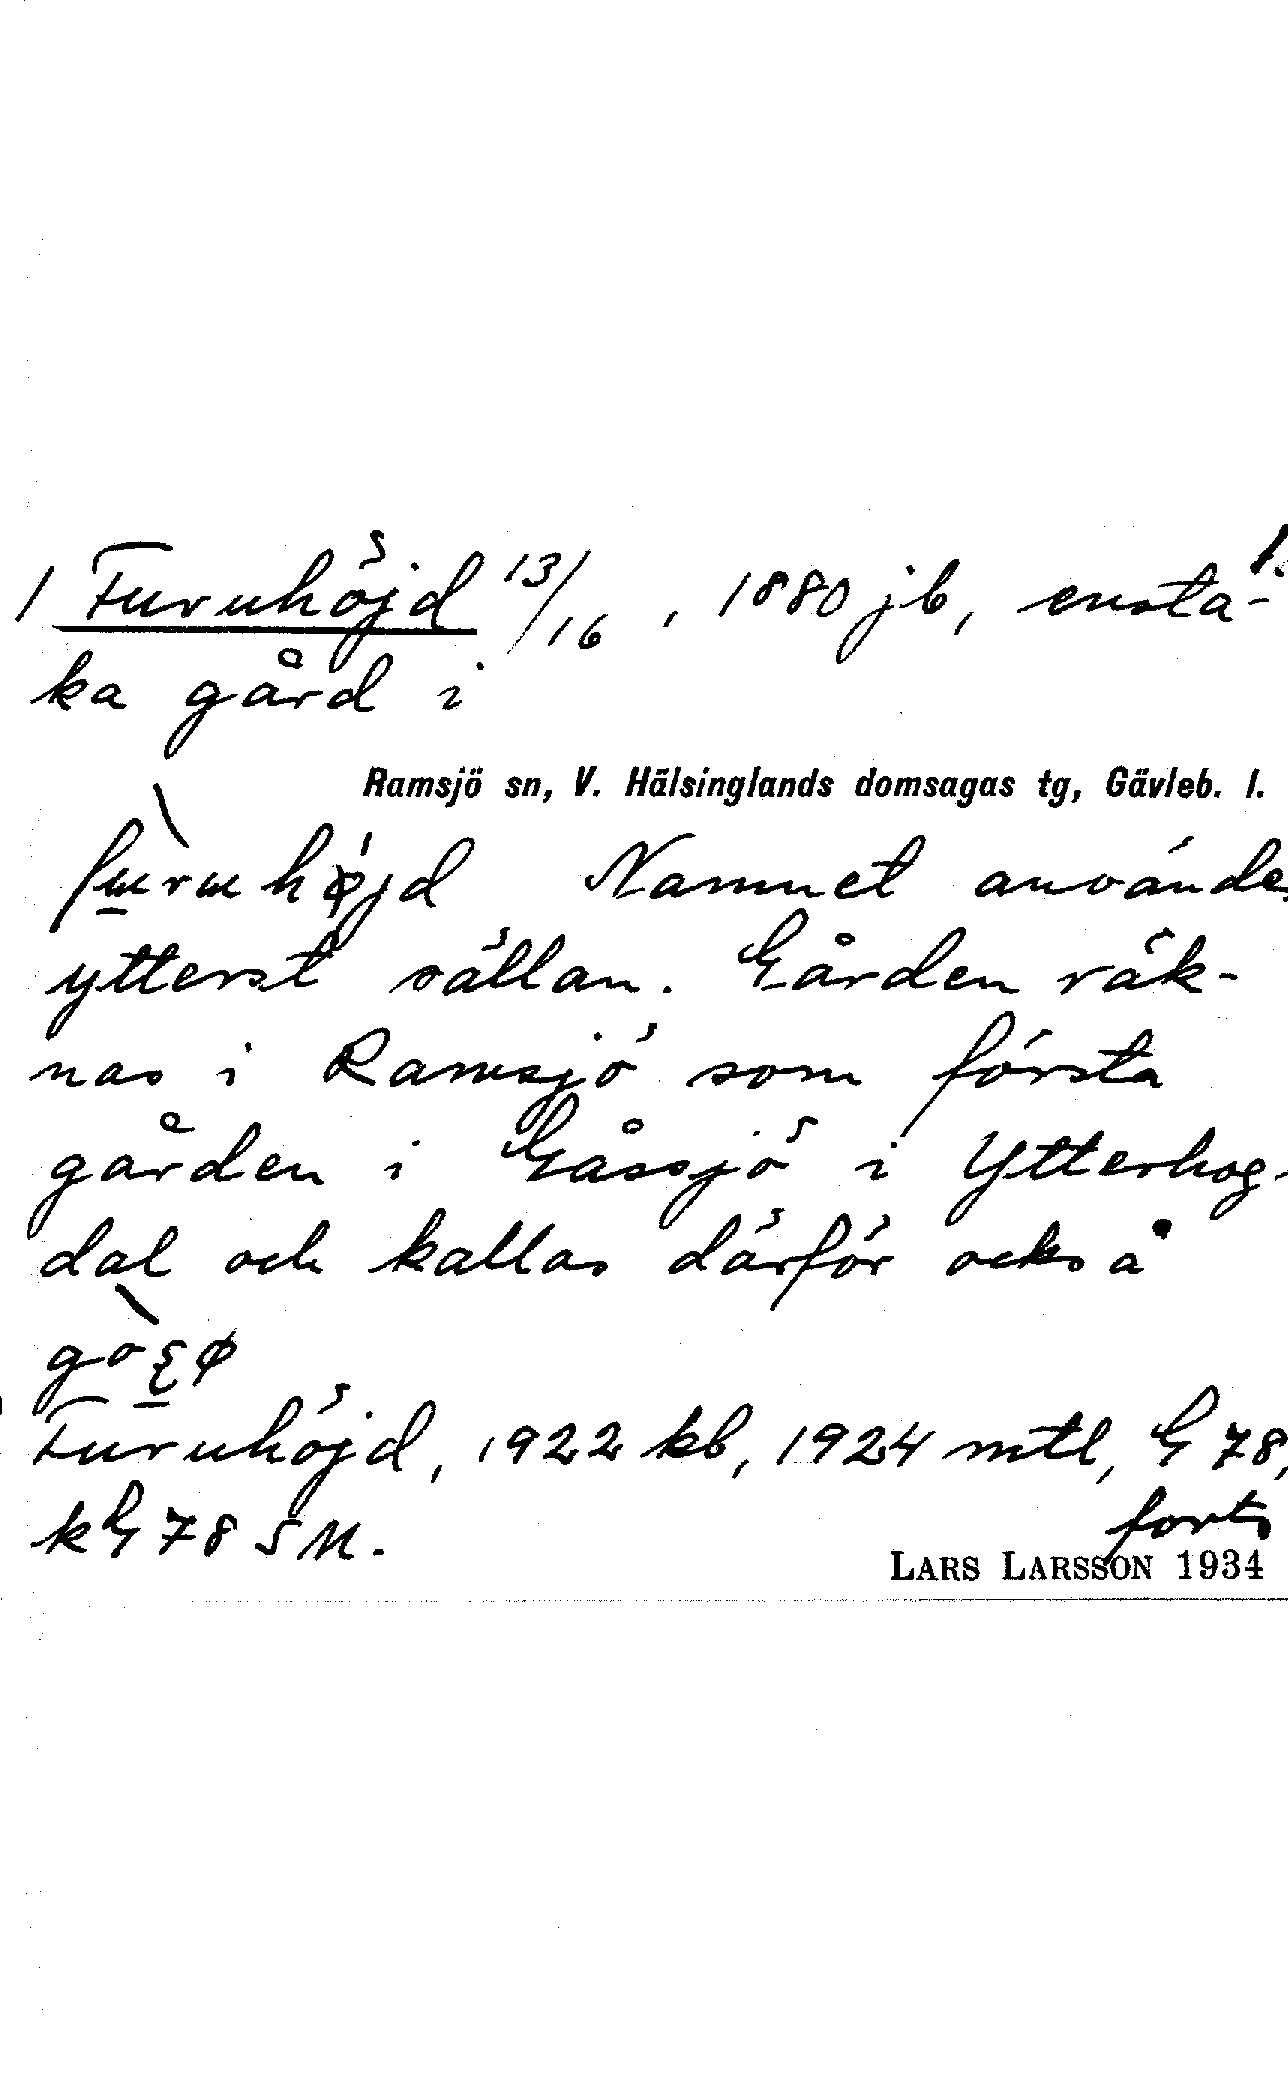 1.
1 Furuhöjd 13/16, 1880 jb, ensta-
ka gård i
Ramsjö sn, V. Hälsinglands domsagas tg, Gävleb. l.
Namnet användes
ytterst sällan. Gården räk-
nas i Ramsjö som första
gården i Gåssjö i Ytterhog-
dal och kallas därför också
Furuhöjd, 1922 kb, 1924 mtl, G 78,
kG 78 SM.
forts
LARS LARSSON 1934